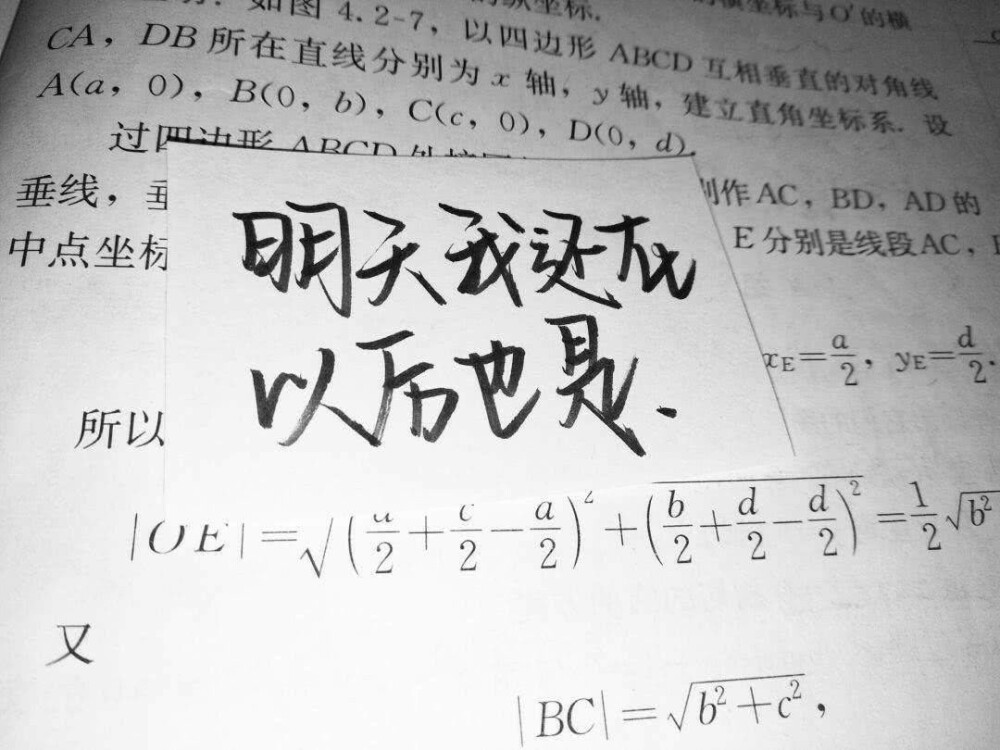 如图 4.2-7，以四边形 ABCD 互相垂直的对角线
CA，DB 所在直线分别为 x 轴，y 轴，建立直角坐标系. 设
A(a，0)，B(0，b)，C(c，0)，D(0，d).
过四边形 ABCD
垂线，
别作 AC，BD，AD 的
中点坐标
E 分别是线段 AC，
明天我还在
以后也是.
x_E=a/2，y_E=d/2.
所以
|OE|=√((a/2+c/2-a/2)²+(b/2+d/2-d/2)²)=1/2√b²
又
|BC|=√(b²+c²)，